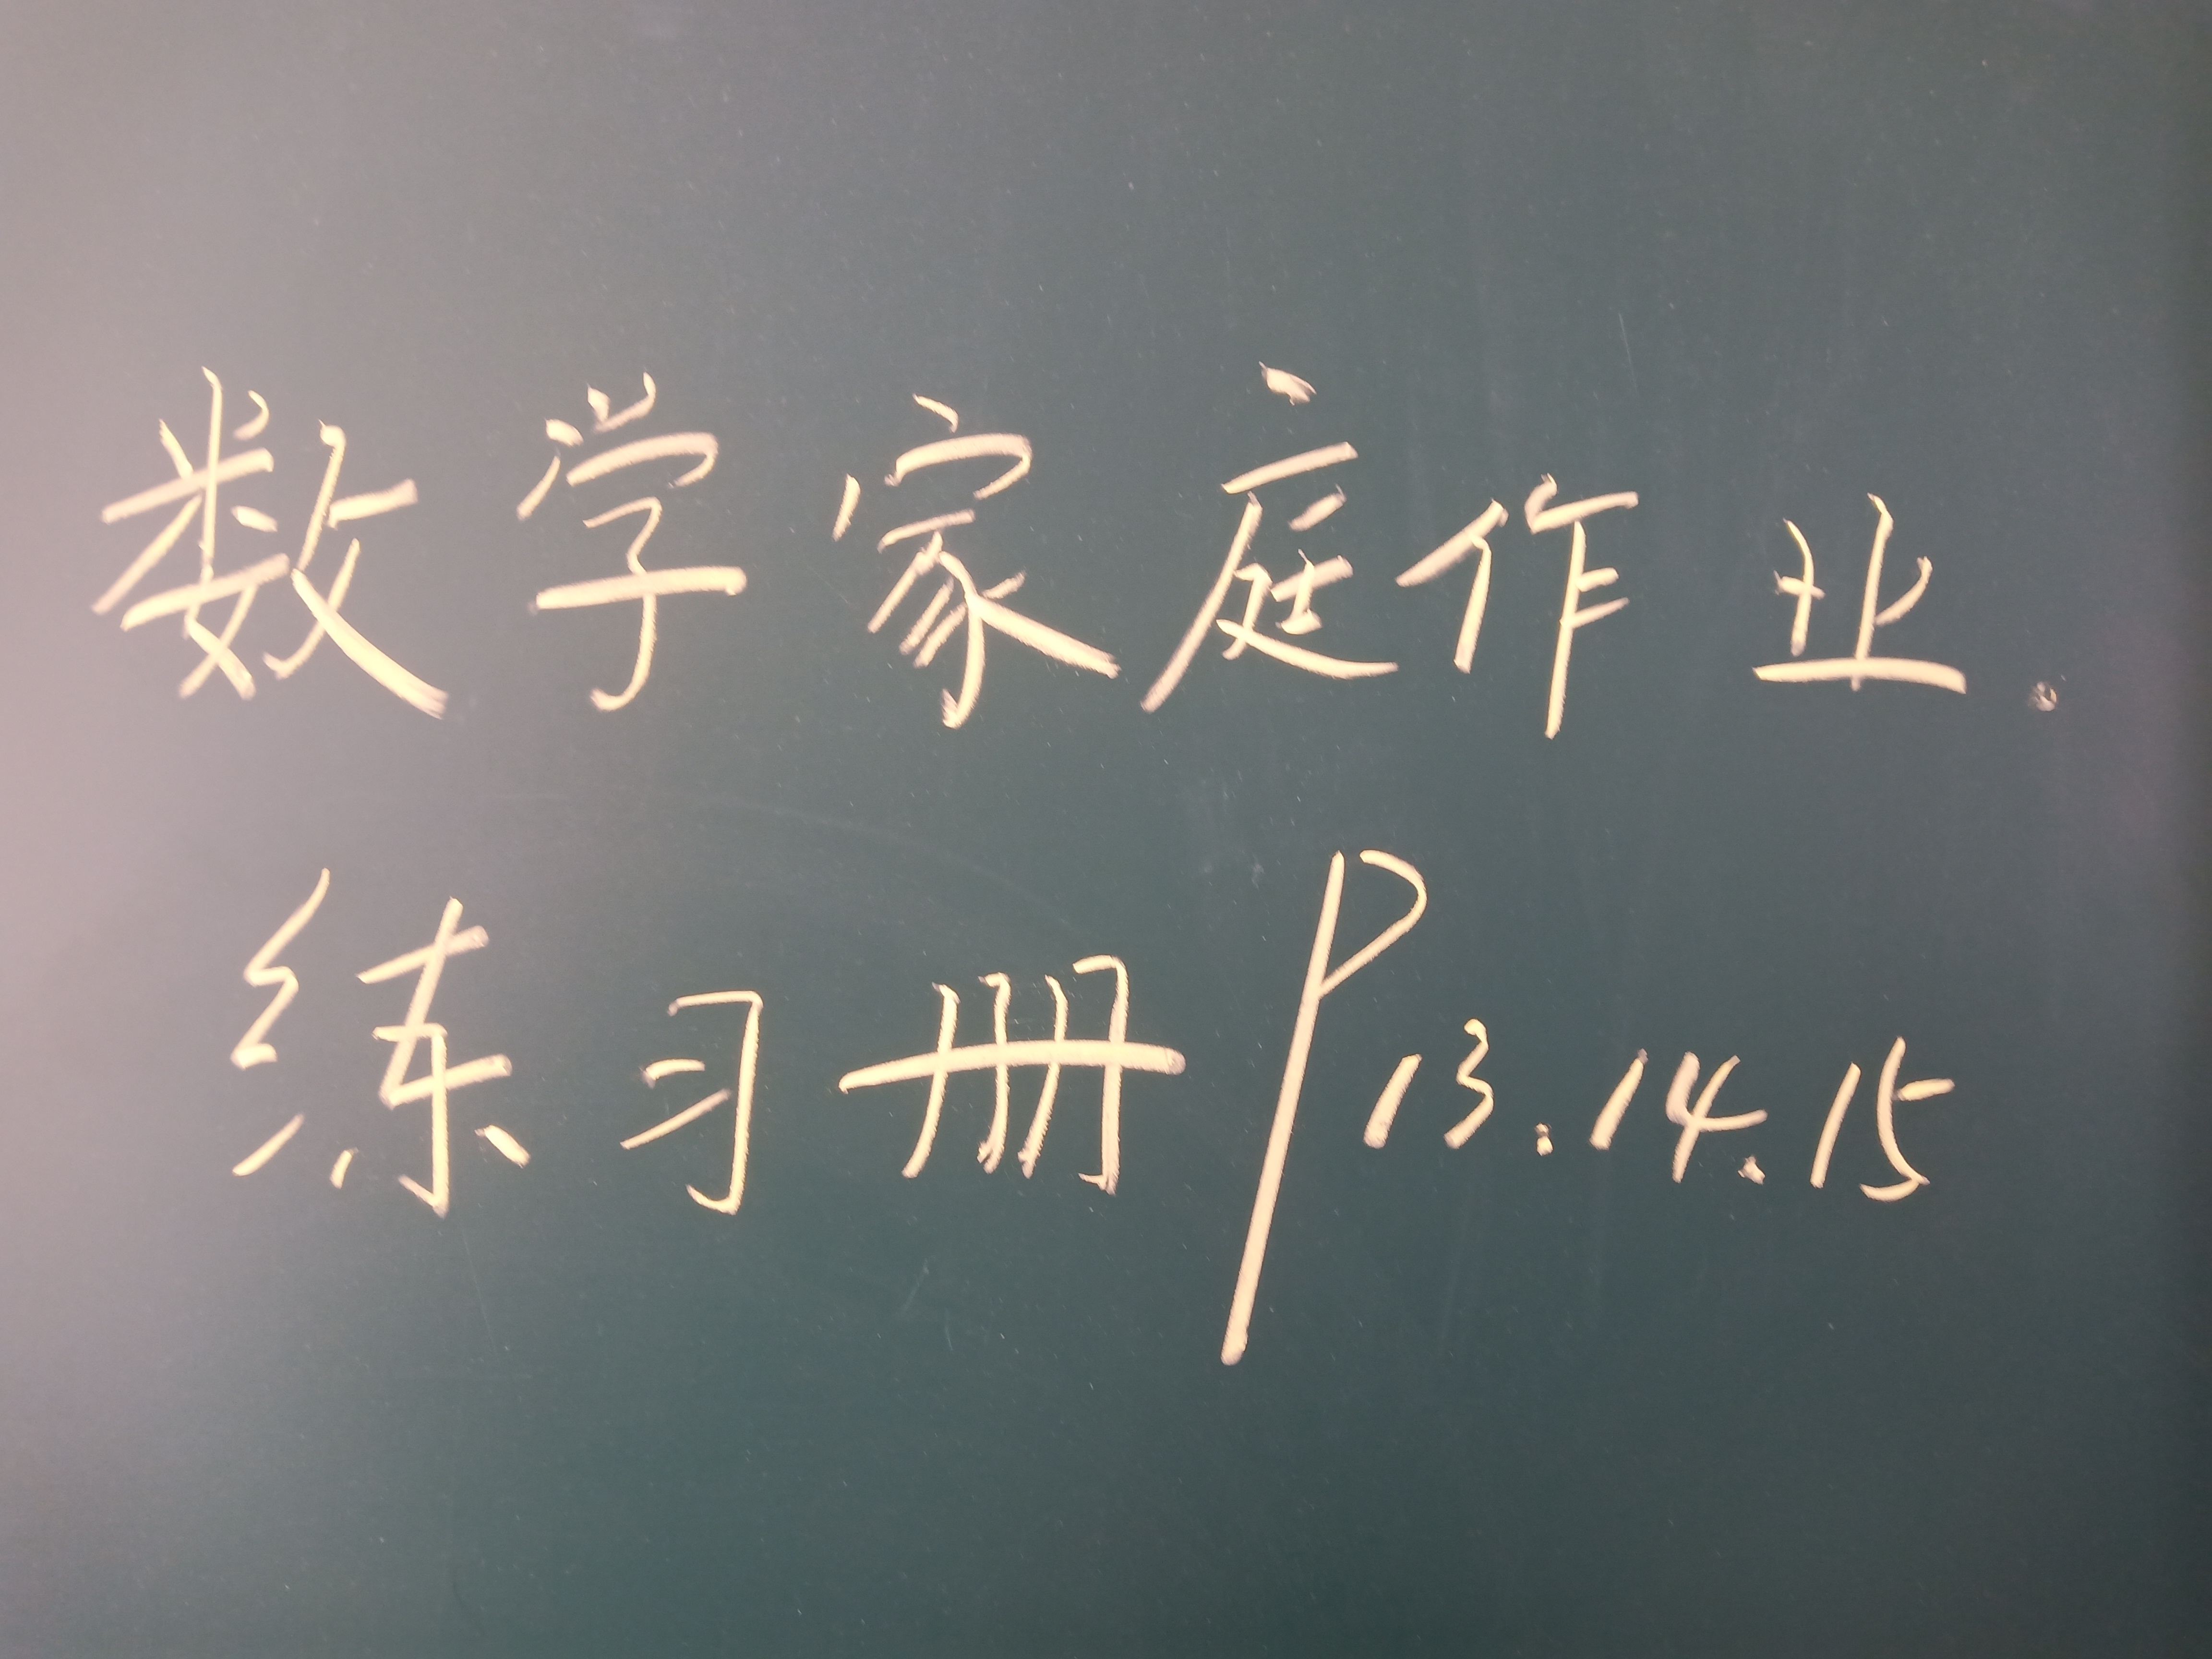 数学家庭作业.
练习册P13.14.15